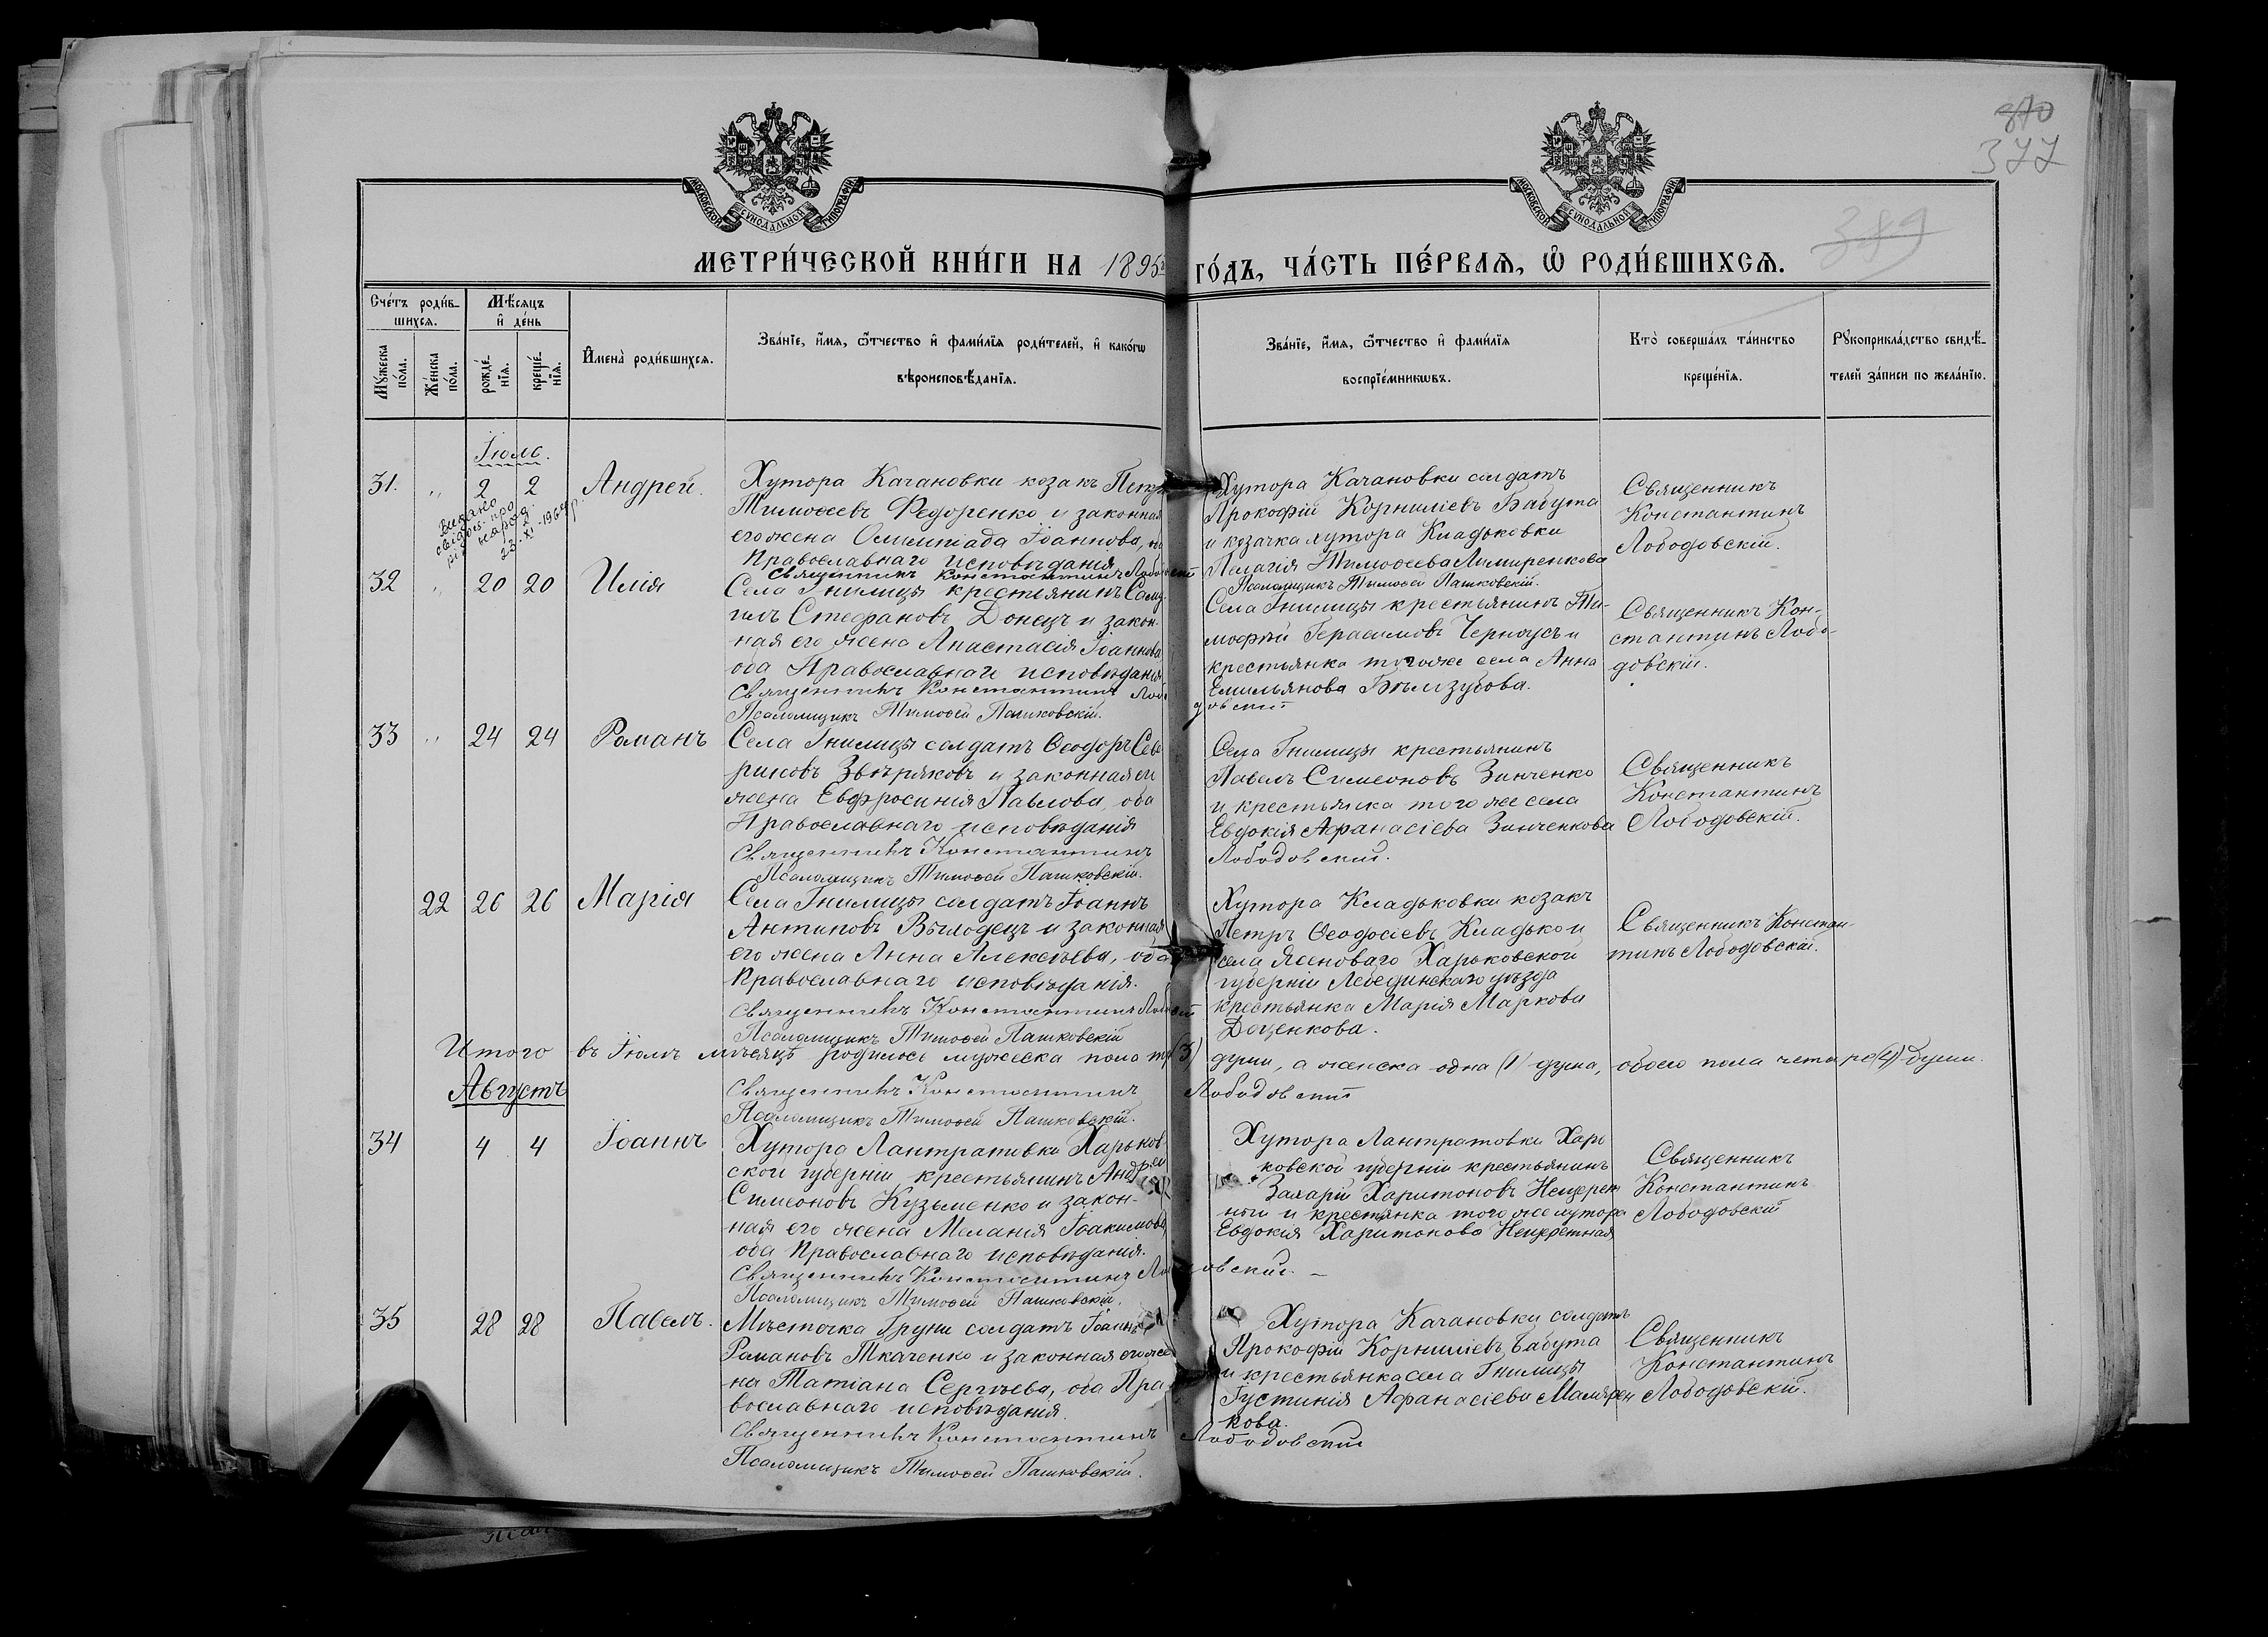 870
377
389
МОСКОВСКОЙ СѴНОДАЛЬНОЙ ТИПОГРАФІИ
МОСКОВСКОЙ СѴНОДАЛЬНОЙ ТИПОГРАФІИ
МЕТРИ́ЧЕСКОЙ КНИ́ГИ НА 1895 ГО́ДЪ, ЧА́СТЬ ПЕ́РВАЯ, Ѡ҆ РОДИ́ВШИХСЯ.
Сче́тъ роди́в-
шихся.
Мꙋ́жеска по́ла.
Же́нска по́ла.
Мѣ́сяцъ
и҆ де́нь
рожде́-
нїя.
креще́-
нїя.
И҆мена̀ роди́вшихся.
Зва́нїе, и҆́мя, ѻ҆́тчество и҆ фами́лїя роди́телей, и҆ како́гѡ
вѣроисповѣ́данїя.
Зва́нїе, и҆́мя, ѻ҆́тчество и҆ фами́лїя
воспрїе́мникѡвъ.
Кто̀ соверша́лъ та́инство
креще́нїя.
Рꙋкоприкла́дство свидѣ́-
телей за́писи по жела́нїю.
Іюль.
31. „ 2 2 Андрей.
Видано
свідоц. про
народ.
23-XI-1964р.
Хутора Качановки козакъ Петръ
Тимоѳеевъ Федоренко и законная
его жена Олимпіада Іоаннова,
Православнаго исповѣданія
Священникъ Константинъ Лободовскій
Хутора Качановки солдатъ
Прокофій Корниліевъ Бабута
и козачка хутора Кладьковки
Пелагія Тимоѳеева
Псаломщикъ Тимоѳей Пашковскій.
Священникъ
Константинъ
Лободовскій.
32 „ 20 20 Илія
Села Гнилицы крестьянинъ
Стефановъ Донецъ и закон-
ная его жена Анастасія Іоаннова
оба Православнаго исповѣданія
Священникъ Константинъ Лободовскій
Псаломщикъ Тимоѳей Пашковскій.
Села Гнилицы крестьянинъ Ти-
мофей Герасимовъ Черноусъ и
крестьянка того же села Анна
Емильянова Бѣлизубова.
Священникъ Кон-
стантинъ Лобо-
довскій.
33 „ 24 24 Романъ
Села Гнилицы солдатъ Ѳеодоръ Севе
риновъ Звѣряковъ и законная его
жена Евфросинія Павлова, оба
Православнаго исповѣданія
Священникъ Константинъ
Псаломщикъ Тимоѳей Пашковскій.
Села Гнилицы крестьянинъ
Павелъ Симеоновъ Зинченко
и крестьянка того же села
Евдокія Афанасіева Зинченкова
Лободовскій.
Священникъ
Константинъ
Лободовскій.
22 26 26 Марія
Села Гнилицы солдатъ Іоаннъ
Антиповъ и законная
его жена Анна Алексѣева, оба
Православнаго исповѣданія.
Священникъ Константинъ Лободовскій
Псаломщикъ Тимоѳей Пашковскій
Хутора Кладьковки козакъ
Петръ Ѳеодосіевъ Кладько и
села Ясеноваго Харьковской
губерніи Лебединскаго уѣзда
крестьянка Марія Маркова
Доценкова.
Священникъ Констан-
тинъ Лободовскій.
Итого въ Іюлѣ мѣсяцѣ родилось мужеска пола три (3) души, а женска одна (1) душа, обоего пола четыре (4) души.
Августъ
Священникъ Константинъ Лободовскій
Псаломщикъ Тимоѳей Пашковскій.
34 4 4 Іоаннъ
Хутора Лантратовки Харьков-
ской губерніи крестьянинъ Андрей
Симеоновъ Кузьменко и закон-
ная его жена Меланія Іоакимова,
оба Православнаго исповѣданія.
Священникъ Константинъ Лободовскій.
Псаломщикъ Тимоѳей Пашковскій.
Хутора Лантратовки Харь
ковской губерніи крестьянинъ
Захарій Харитоновъ Нещерет
ный и крестьянка того же хутора
Евдокія Харитонова Нещеретная
Священникъ
Константинъ
Лободовскій
35 28 28 Павелъ.
Мѣсточка Груни солдатъ Іоаннъ
Романовъ Ткаченко и законная его же
на Татіана Сергѣева, оба Пра-
вославнаго исповѣданія.
Священникъ Константинъ Лободовскій
Псаломщикъ Тимоѳей Пашковскій.
Хутора Качановки солдатъ
Прокофій Корниліевъ Бабута
и крестьянка села Гнилицы
Іустинія Афанасіева Малярен
кова.
Священникъ
Константинъ
Лободовскій.